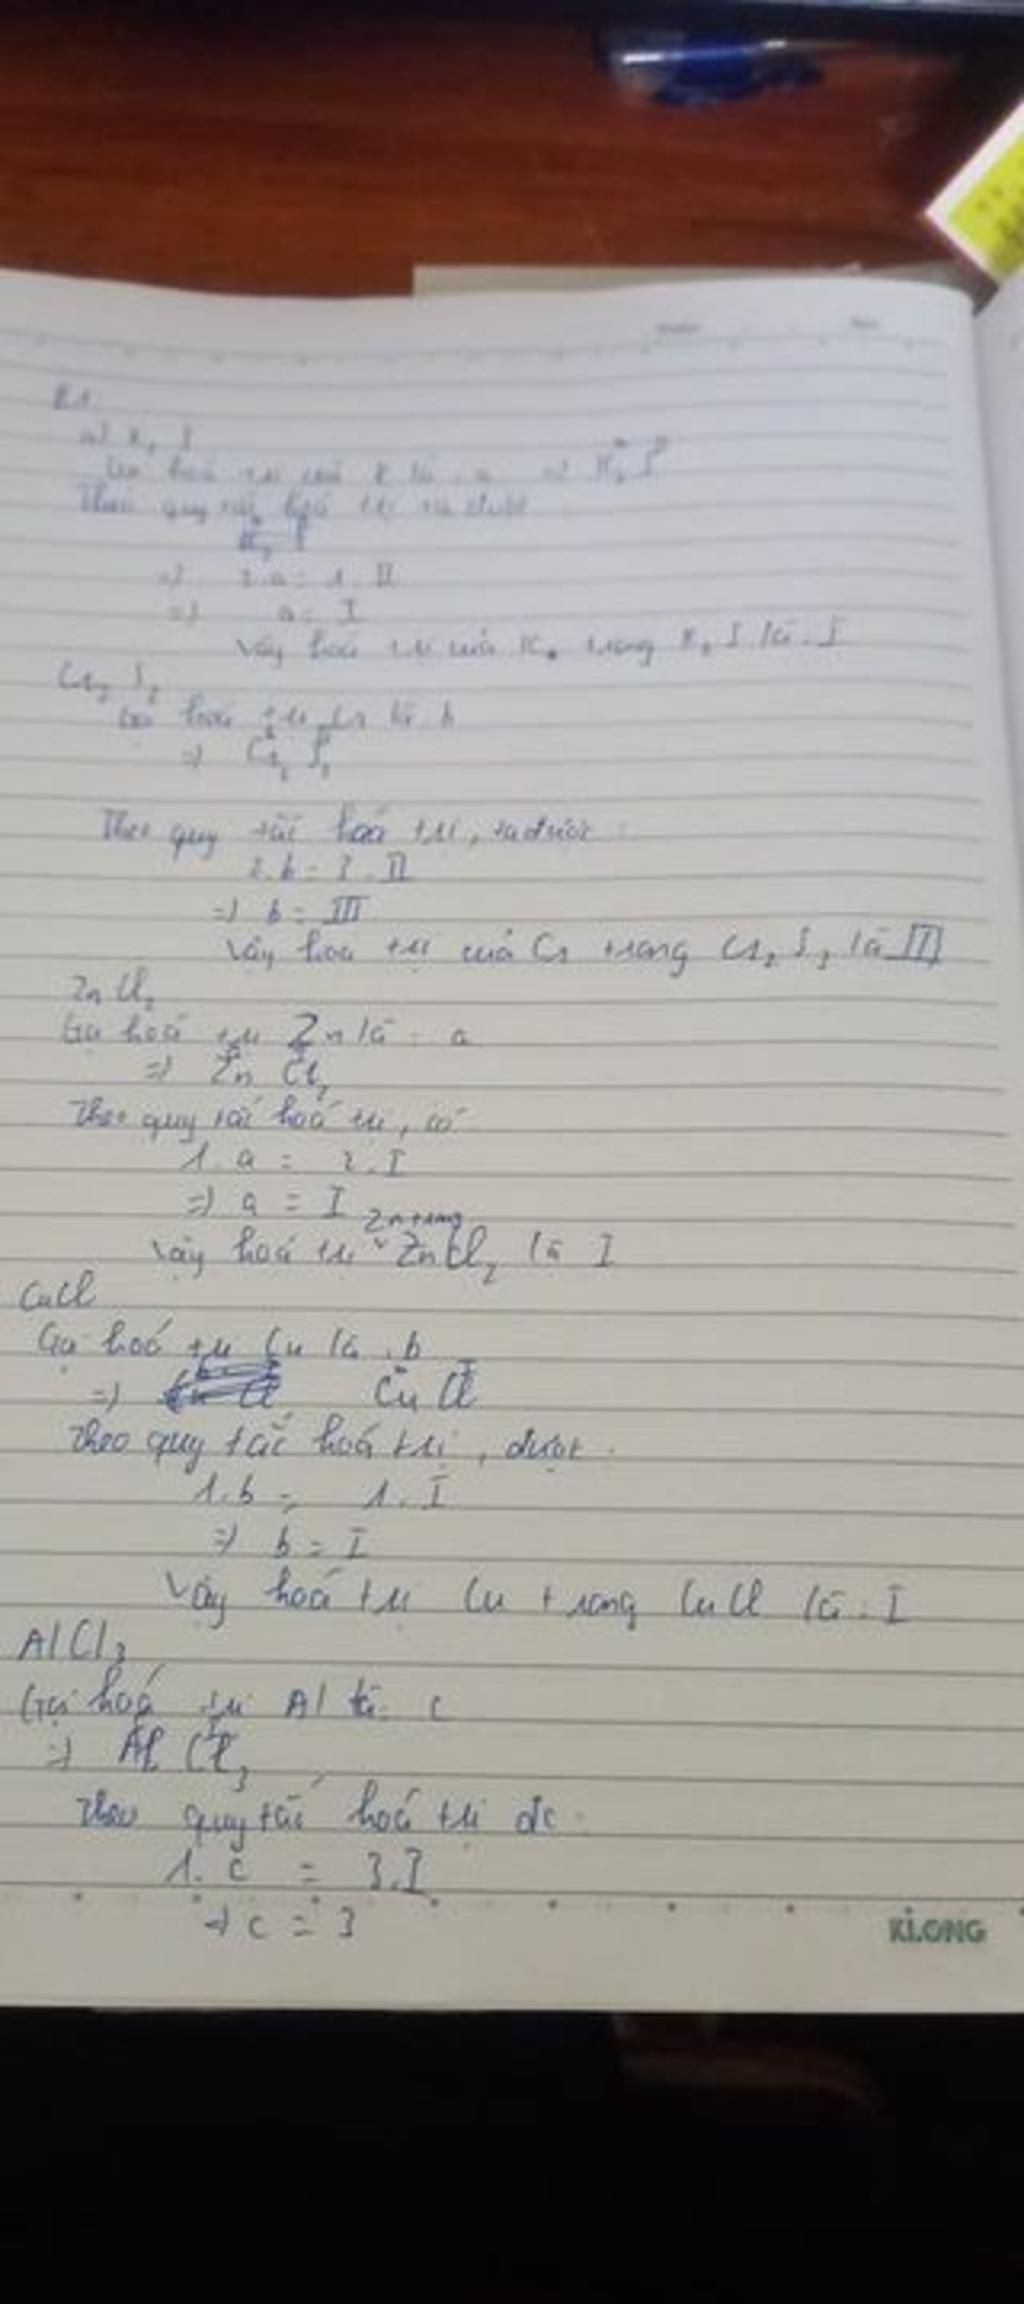 a) K₂ S
Gọi hoá trị của K là : a => K₂ S
Theo quy tắc hoá trị ta được
K₂ S
=> 2.a = 1. II
=> a = I
Vậy hoá trị của K trong K₂ S là : I
Cr₂ S₃
Gọi hoá trị Cr là b
=> Cr₂ S₃
Theo quy tắc hoá trị, ta được :
2.b = 3. II
=> b = III
Vậy hoá trị của Cr trong Cr₂ S₃ là III
Zn Cl₂
Gọi hoá trị Zn là : a
=> Zn Cl₂
Theo quy tắc hoá trị, có
1. a = 2. I
=> a = I
Vậy hoá trị Zn trong ZnCl₂ là I
CuCl
Gọi hoá trị Cu là . b
=> Cu Cl
Theo quy tắc hoá trị, được .
1.b = 1. I
=> b = I
Vậy hoá trị Cu trong CuCl là : I
AlCl₃
Gọi hoá trị Al là : c
=> Al Cl₃
Theo quy tắc hoá trị đc .
1. c = 3.I
=> c = 3
KLONG